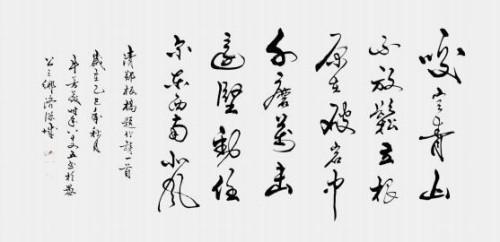 咬定青山
不放鬆立根
原在破岩中
千磨萬击
還堅勁任
尔东西南北風
清鄭板橋題竹詩一首
歲在乙巳年秋月
八十又五书於